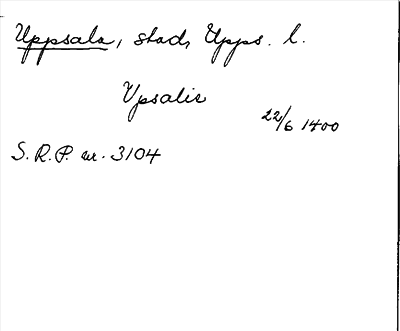 Uppsala, stad, Upps. l.
Vpsalis
22/6 1400
S.R.P. nr. 3104